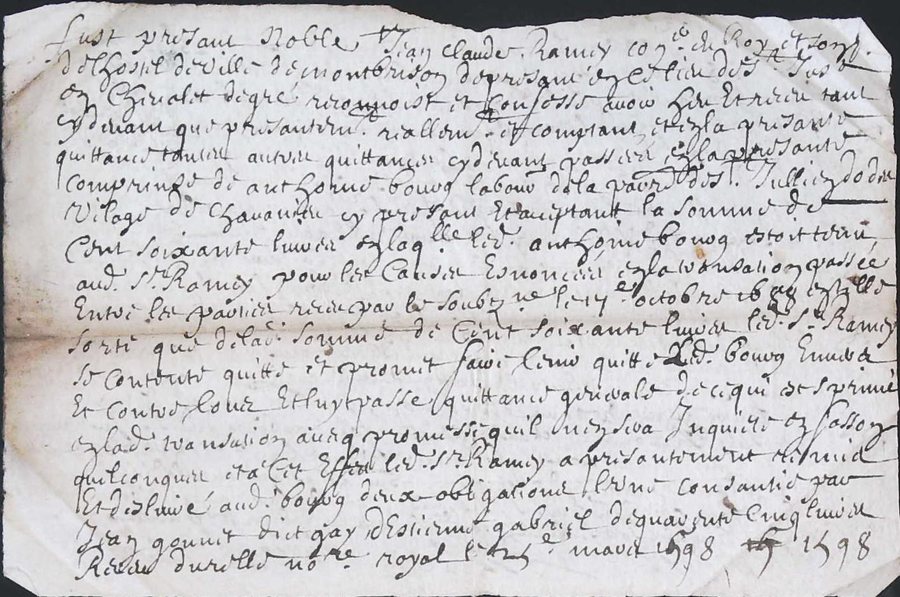 fust presant Noble Jean Claude Ramey con.er du Roy et son
de lhostel de ville de montbrison de presant en ce lieu de st Just
en Chevalet de gré reconnoist et Confesse avoir heu Et receu tant
cy devant que presantemt reallemt et comptant et en la presante
quittance toutes autres quittances cy devant passées en la presante
comprinse de anthoine bourg labour de la parre de st Jullien dodes
Vilage de Chavanne cy presant Et aceptant la somme de
Cent soixante livres en laqlle led. anthoine bourg estoit tenu
aud. sr Ramey pour les Causes Enoncées en la transation passée
Entre les parties receu par le soubzne le 17e octobre en telle
sorte que de lad. somme de Cent soixante livres led. sr Ramey
se contente quitte et promet faire tenir quitte led. bourg Envers
Et contre tous Et luy passe quittance generale de ce qui est primé
en lad. transation avecq promesse quil nen sera Inquieté en fasson
quelconques et a Cet Effect led. sr Ramey a presantement remis
Et deslivré aud. bourg deux obligations lune consantie par
Jean gonnet dict gay dEstienne gabriel de quarente Cinq livres
Receu durelle nore royal le mars 1598 1598